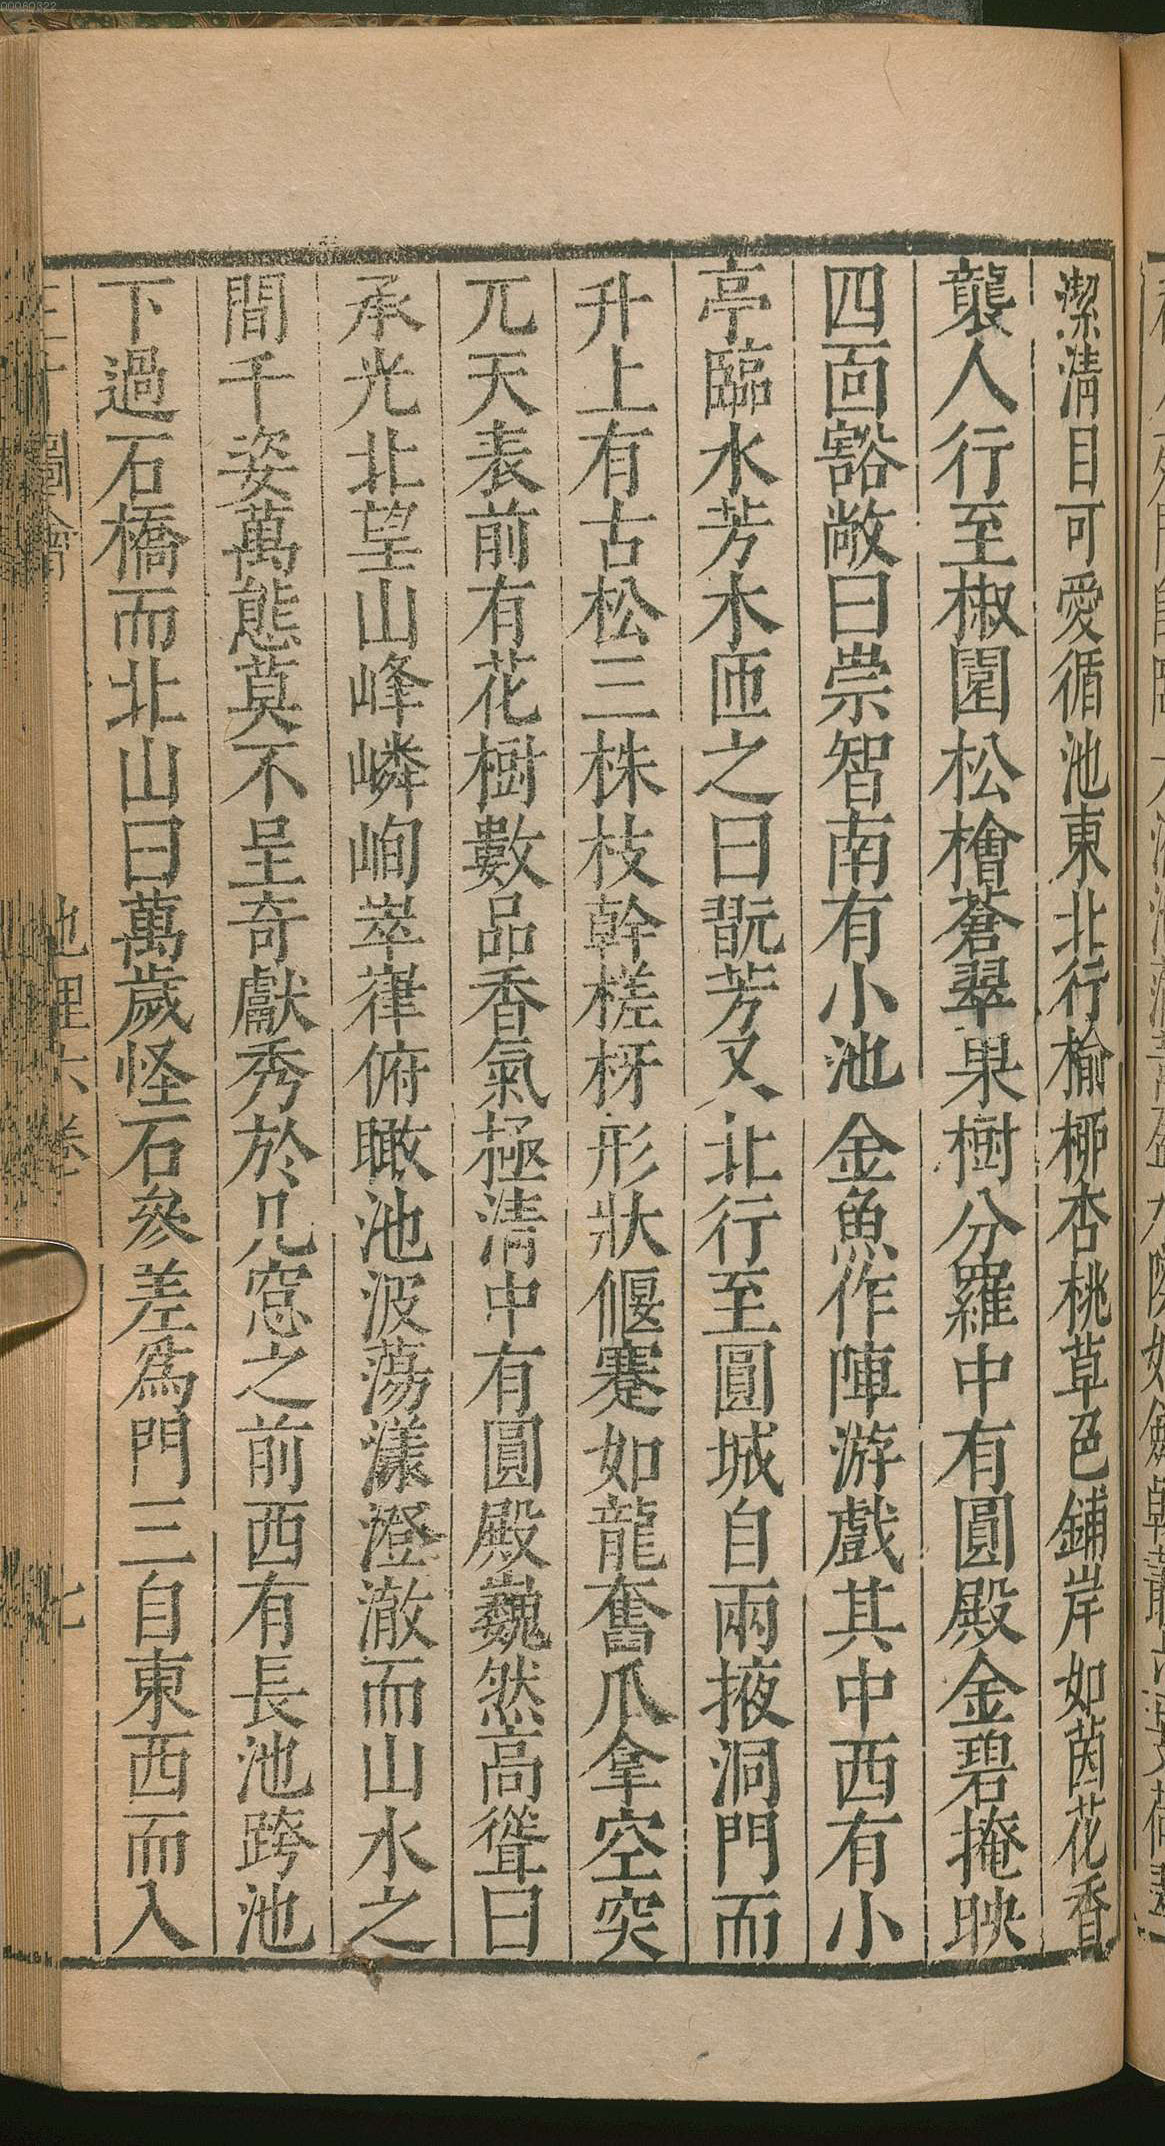 潔清目可愛循池東北行榆柳杏桃草色鋪岸如茵花香
襲人行至椒園松檜蒼翠果樹分羅中有圓殿金碧掩映
四面豁敞曰崇智南有小池金魚作陣游戲其中西有小
亭臨水芳木匝之曰翫芳又北行至圓城自兩掖洞門而
升上有古松三株枝幹槎枒形狀偃蹇如龍奮爪拿空突
兀天表前有花樹數品香氣極清中有圓殿巍然高聳曰
承光北望山峰嶙峋崒嵂俯瞰池波蕩漾澄澈而山水之
間千姿萬態莫不呈奇獻秀於几窓之前西有長池跨池
下過石橋而北山曰萬歲怪石參差為門三自東西而入
圖會
地理六卷
七
00080322